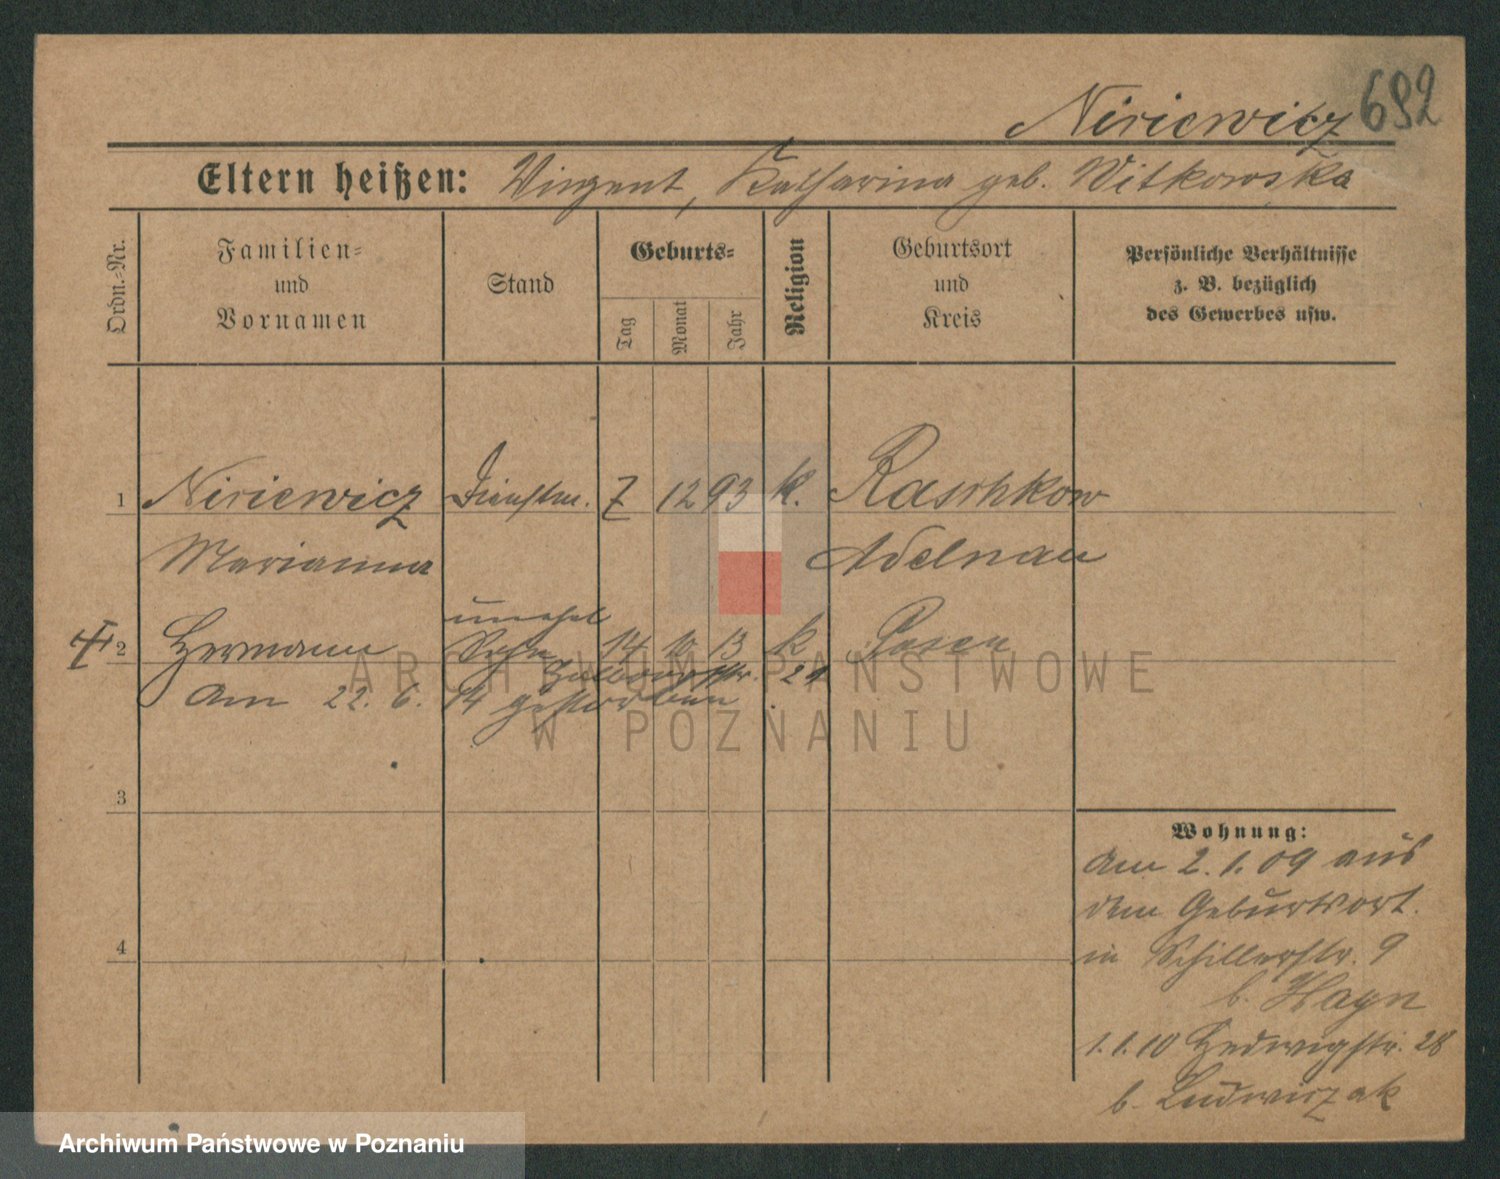 692
Niriewicz
Eltern heißen: Vinzent, Katharina geb. Witkowska
Ordn.-Nr.
Familien-
und
Vornamen
Stand
Geburts-
Tag
Monat
Jahr
Religion
Geburtsort
und
Kreis
Persönliche Verhältnisse
z. B. bezüglich
des Gewerbes usw.
1 Niriewicz Dienstm. 7 12 93 K. Raschkow
Marianna Adelnau
unehel
2 Hermann Sohn 14 10 13 K Posen
24
Am 22. 6. 14 gestorben
3
4
Wohnung:
Am 2.1.09 aus
dem Geburtsort.
in Schillerstr. 9
b. Hayn
1.1.10 Hedwigstr. 28
b. Ludwiczak
ARCHIWUM PAŃSTWOWE
W POZNANIU
Archiwum Państwowe w Poznaniu